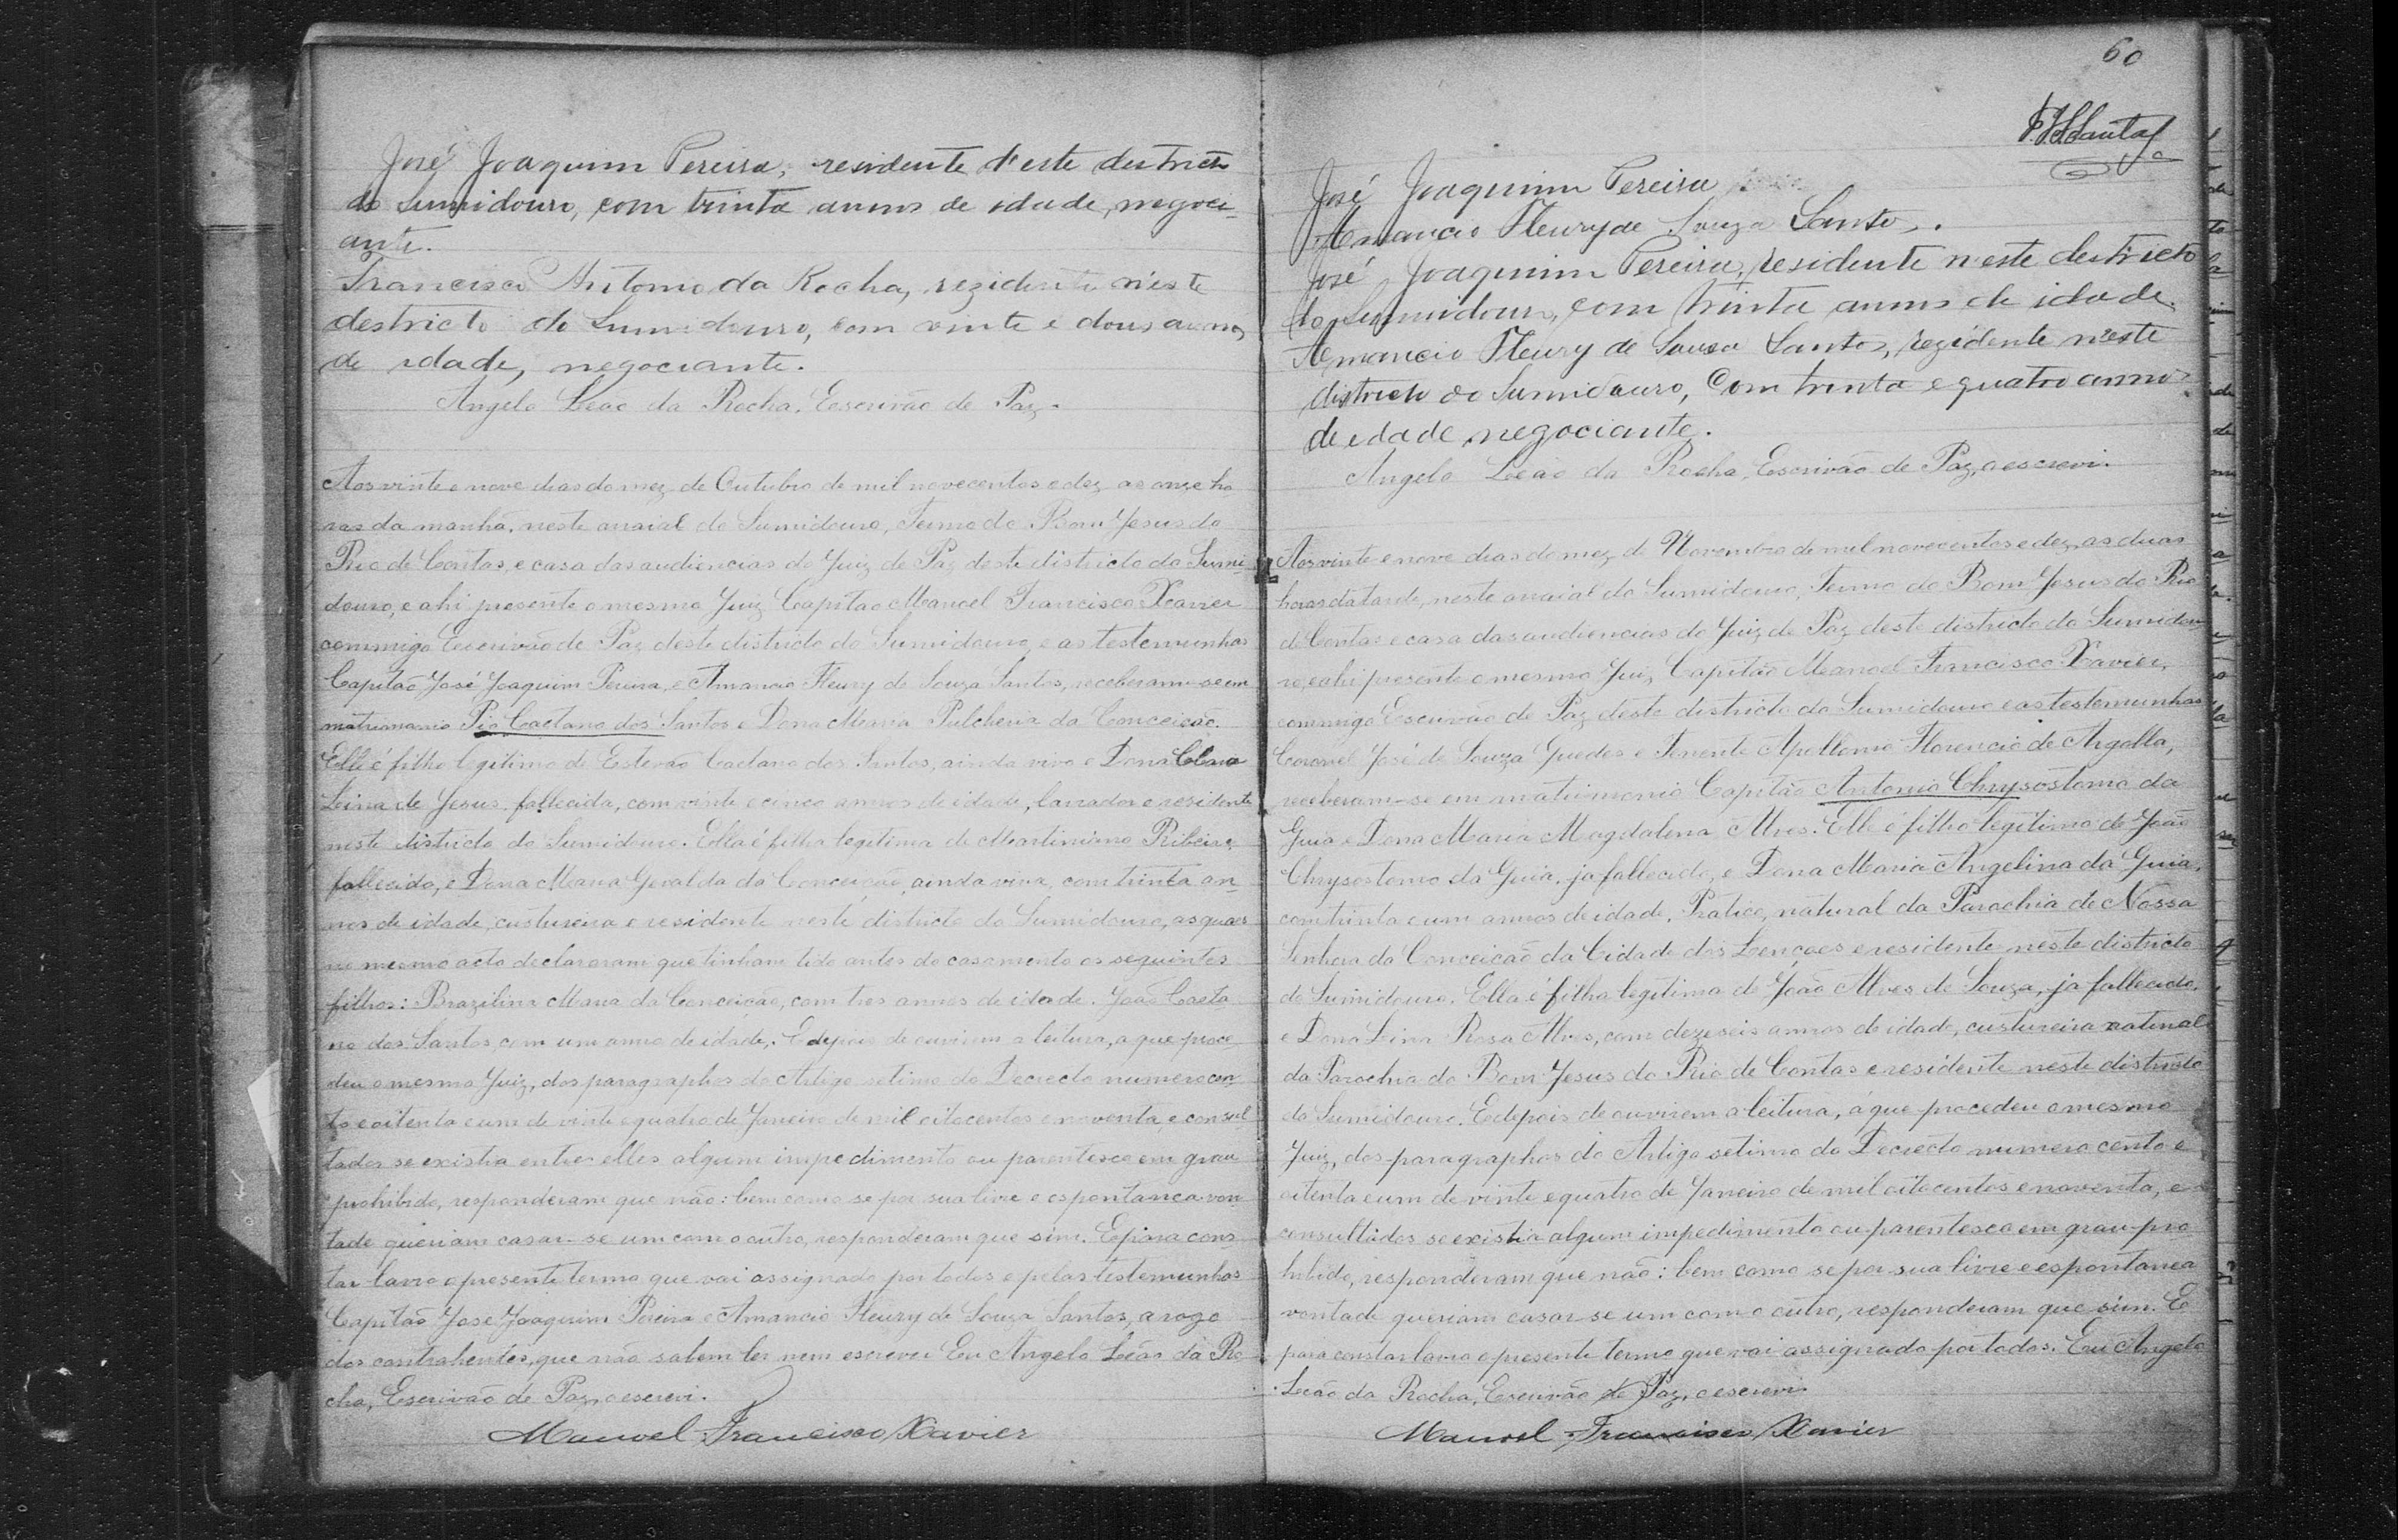 José Joaquim Pereira, residente n'este destricto
do Sumidouro, com trinta annos de idade, negoci-
ante.
Francisco Antonio da Rocha, rezidente n'este
destricto do Sumidouro, com vinte e dous annos
de idade, negociante.
Angelo Leão da Rocha, Escrivão de Paz.
Aos vinte e nove dias do mez de Outubro de mil novecentos e dez as onze ho
ras da manhã, neste arraial do Sumidouro, Termo do Bom Jesus do
Rio de Contas, e casa das audiencias do Juiz de Paz deste districto do Sumi-
douro, e ahi presente o mesmo Juiz Capitão Manoel Francisco Xavier
commigo Escrivão de Paz deste districto do Sumidouro, e as testemunhas
Capitão José Joaquim Pereira, e Amancio Fleury de Souza Santos, receberam-se em
matrimonio Pio Caetano dos Santos e Dona Maria Pulcheria da Conceição.
Elle é filho legitimo de Estevão Caetano dos Santos, ainda vivo e Dona Clara
Leina de Jesus, fallecida, com vinte e cinco annos de idade, lavrador e residente
neste districto do Sumidouro. Ella é filha legitima de Martiniano Ribeiro,
fallecido, e Dona Maria Geralda da Conceição, ainda viva, com trinta an-
nos de idade, custureira e residente neste districto do Sumidouro, as quaes
no mesmo acto declararam que tinham tido antes do casamento os seguintes
filhos: Brazilina Maria da Conceição, com tres annos de idade. João Caeta
no dos Santos, com um anno de idade. E depois de ouvirem a leitura, a que proce-
deu o mesmo Juiz, dos paragraphos do Artigo setimo do Decreto numero cen
to e oitenta e um de vinte e quatro de Janeiro de mil oitocentos e noventa, e consul
tados se existia entre elles algum impedimento ou parentesco em grau
prohibido, responderam que não: bem como se por sua livre e espontanea von
tade queriam casar-se um com o outro, responderam que sim. E para cons-
tar lavro o presente termo que vai assignado por todos e pelas testemunhas
Capitão José Joaquim Pereira e Amancio Fleury de Souza Santos, a rogo
dos contrahentes, que não sabem ler nem escrever Eu Angelo Leão da Ro
cha, Escrivão de Paz, o escrevi.
Manoel Francisco Xavier
60
José Joaquim Pereira
Amancio Fleury de Souza Santos.
José Joaquim Pereira, residente n'este destricto
do Sumidouro, com trinta annos de idade.
Amancio Fleury de Souza Santos, rezidente n'este
districto do Sumidouro, Com trinta e quatro annos
de idade, negociante.
Angelo Leão da Rocha, Escrivão de Paz, o escrevi.
Aos vinte e nove dias do mez de Novembro de mil novecentos e dez, as duas
horas da tarde, neste arraial do Sumidouro, Termo do Bom Jesus do Rio
de Contas e casa das audiencias do Juiz de Paz deste districto do Sumidou
ro, e ahi presente o mesmo Juiz, Capitão Manoel Francisco Xavier,
commigo Escrivão de Paz deste districto do Sumidouro e as testemunhas
Coronel José de Souza Guedes e Tenente Apollonio Florencio de Argollo,
receberam-se em matrimonio Capitão Antonio Chrysostomo da
Guia e Dona Maria Magdalena Alves. Elle é filho legitimo de João
Chrysostomo da Guia, ja fallecido, e Dona Maria Angelina da Guia,
com trinta e um annos de idade, Pratico, natural da Parochia de Nossa
Senhora da Conceição da Cidade dos Lençoes e residente neste districto
do Sumidouro. Ella é filha legitima de João Alves de Souza, ja fallecido,
e Dona Leina Rosa Alves, com dezeseis annos de idade, custureira natural
da Parochia do Bom Jesus do Rio de Contas e residente neste districto
do Sumidouro. E depois de ouvirem a leitura, á que procedeu o mesmo
Juiz, dos paragraphos do Artigo setimo do Decreto numero cento e
oitenta e um de vinte e quatro de Janeiro de mil oitocentos e noventa, e
consultados se existia algum impedimento ou parentesco em grau pro
hibido, responderam que não: bem como se por sua livre e espontanea
vontade queriam casar-se um com o outro, responderam que sim. E
para constar lavro o presente termo que vai assignado por todos. Eu Angelo
Leão da Rocha, Escrivão de Paz, o escrevi.
Manoel Francisco Xavier